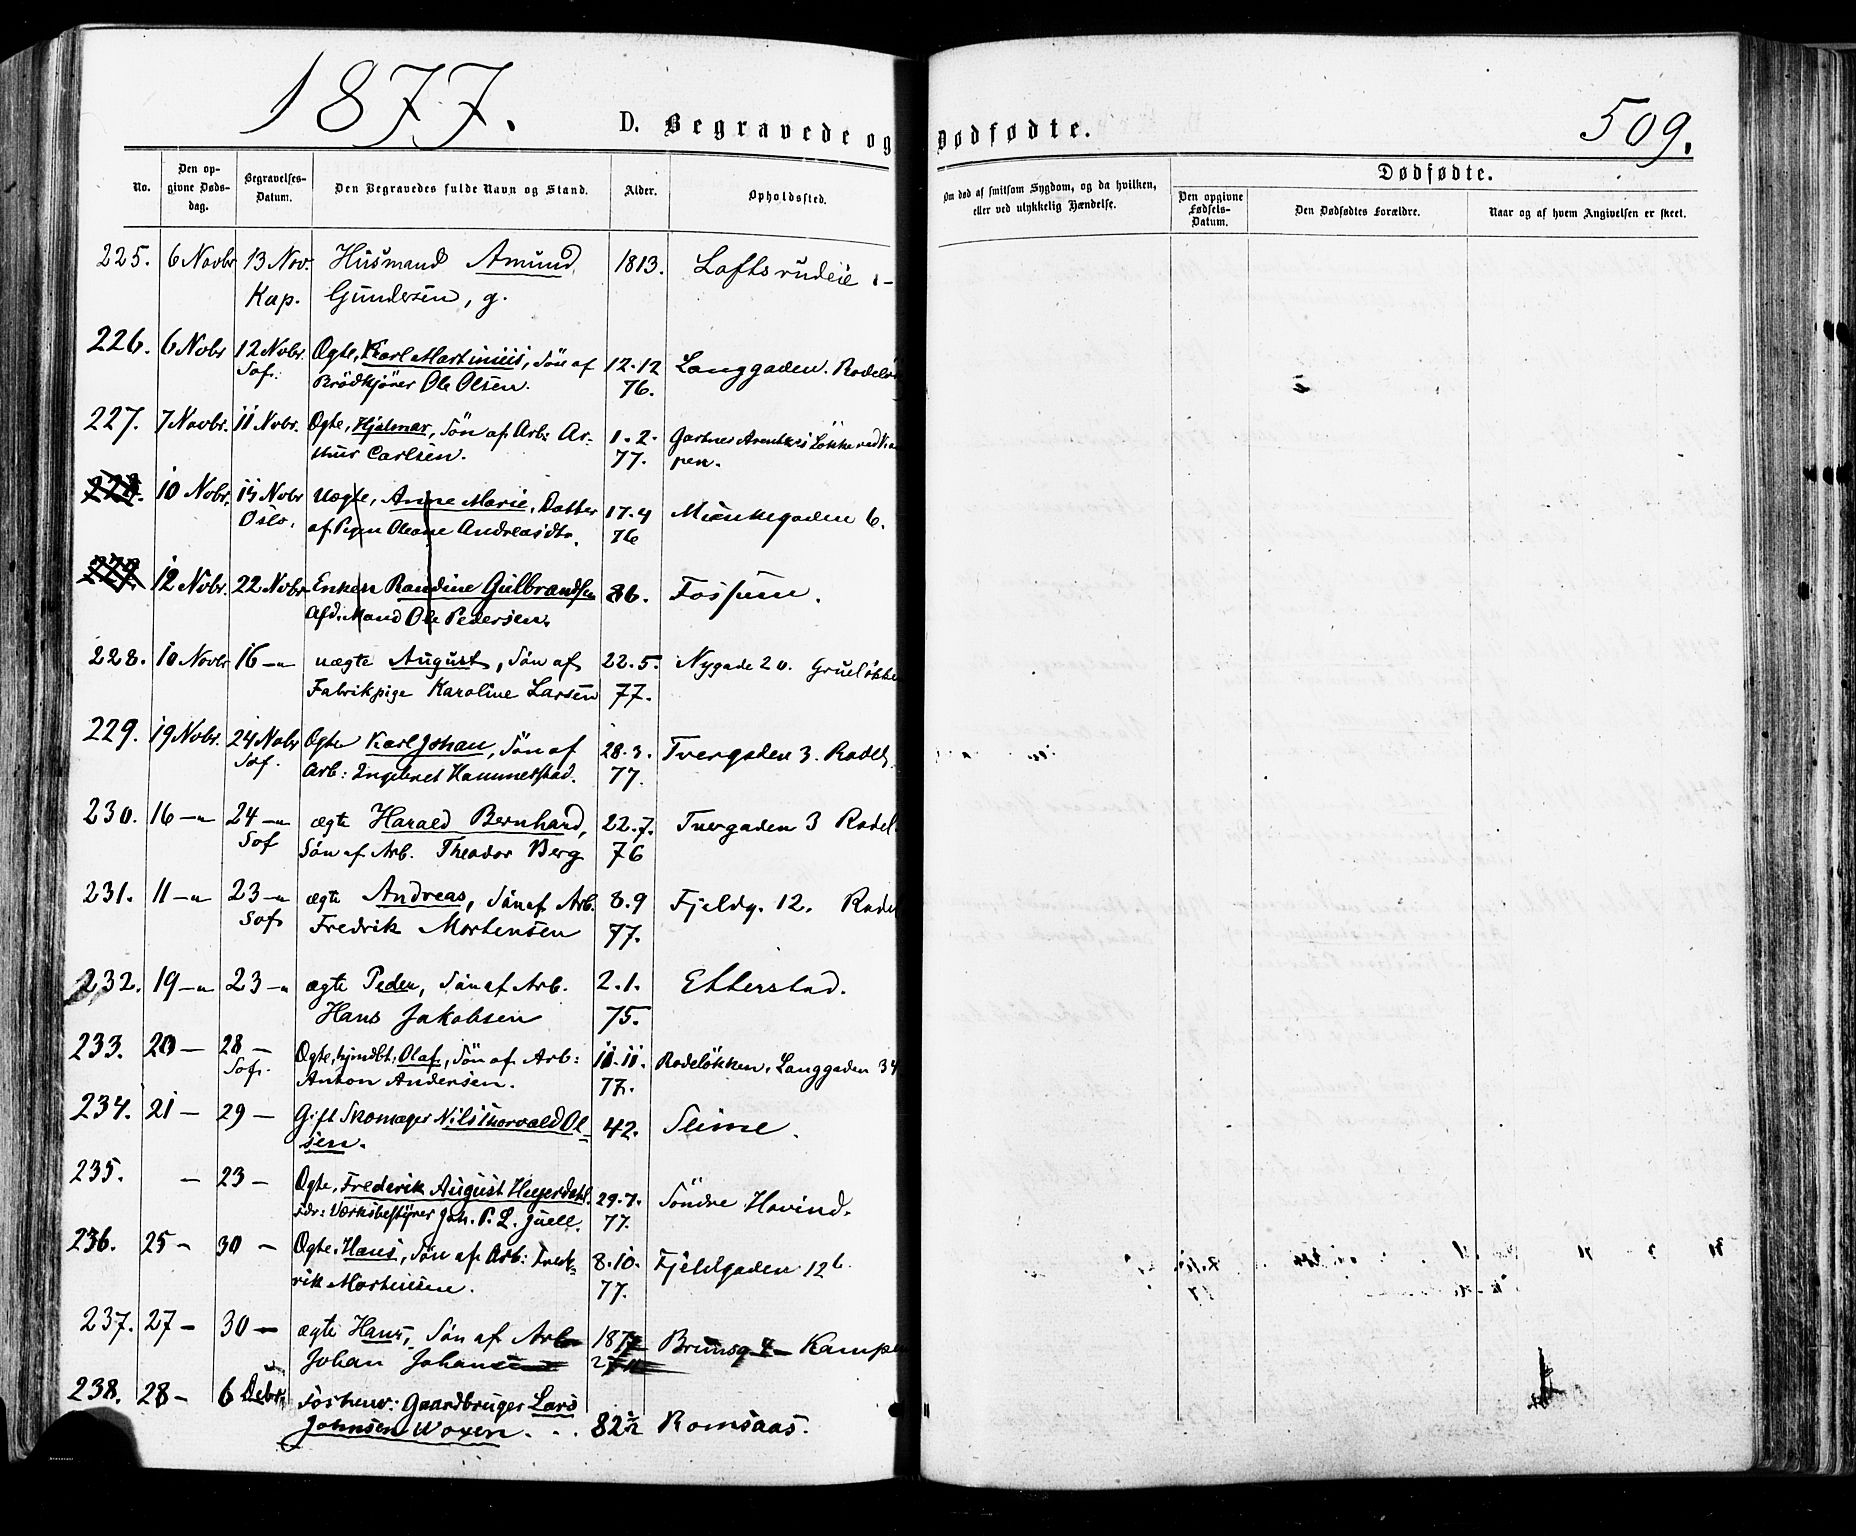 1877.
D. Begravede og Dødfødte.
509.
No.
Den opgivne Døds-dag.
Begravelses-Datum.
Den Begravedes fulde Navn og Stand.
Alder.
Opholdssted.
Om død af smitsom Sygdom, og da hvilken,
eller ved ulykkelig Hændelse.
Dødfødte.
Den opgivne Fødsels-Datum.
Den Dødfødtes Forældre.
Naar og af hvem Angivelsen er skeet.
225. 6 Novbr 13 Nov. Husmand Amund 1813. Loftsrudeie
Kap. Gundersen, g.
226. 6 Nobr 12 Nobr. Ægte, Karl Martinius, Søn af 12.12 Langgaden. Rodeløk
Sof. Brödkjörer Ole Olsen. 76.
227. 7 Novbr. 11 Nobr. Ægte, Hjalmar, Søn af Arb: Ar- 1.2. Gartner Løkke ved Kam
thur Carlsen. 77. pen.
228. 10 Nobr. 15 Nobr Uægte, Anne Marie, Datter 17.4 gaden 6.
Oslo. af Pigen Oleane Andreasdtr. 76
229 12 Nobr. 22 Nobr Enken Randine Gulbrandsen 86. Fossum.
Afd. Mand Ole Pedersen.
228. 10 Novbr 16 — uægte August, Søn af 22.5. Nygade 20. Grueløkke
Fabrikpige Karoline Larsen 77.
229. 19 Nobr. 24 Nobr Ægte Karl Johan, Søn af 28.3. Tvergaden 3. Rodel
Sof. Arb: Ingebret Hammerstad. 77.
230. 16 — 24 — ægte Harald Bernhard, 22.7. Tvergaden 3 Rodel.
Sof Søn af Arb. Theodor Berg 76
231. 11 — 23 — ægte Andreas, Søn af Arb. 8.9 Fjeldg. 12. Rodel
Sof Fredrik Mortensen 77.
232. 19 — 23 — ægte Peder, Søn af Arb. 2.1. Etterstad.
Hans Jakobsen 75.
233. 20 — 28 — Ægte, hjmdbt, Olaf, Søn af Arb: 11.11. Rodeløkken, Langgaden 34
Sof. Anton Andersen. 77.
234. 21 — 29 — Gift Skomager Nils Thorvald Ol- 42.
sen.
235. — 23 — Ægte, Frederik August Heyerdahl. 29.7. Söndre Hovind.
Værksbestyrer Joh. P. L. Juell. 77.
236. 25 — 30 — Ægte, Hans, Søn af Arb: Fred- 8.10. Fjeldgaden 12 b.
rik Mortensen. 77.
237. 27 — 30 — ægte Hans, Søn af Arb 1877 Brunsg 7 Kampen
Johan Johansen
238. 28 — 6 Debr. Gaardbruger Lars
Johnsen Woxen. .. 82 1/2 Romsaas.